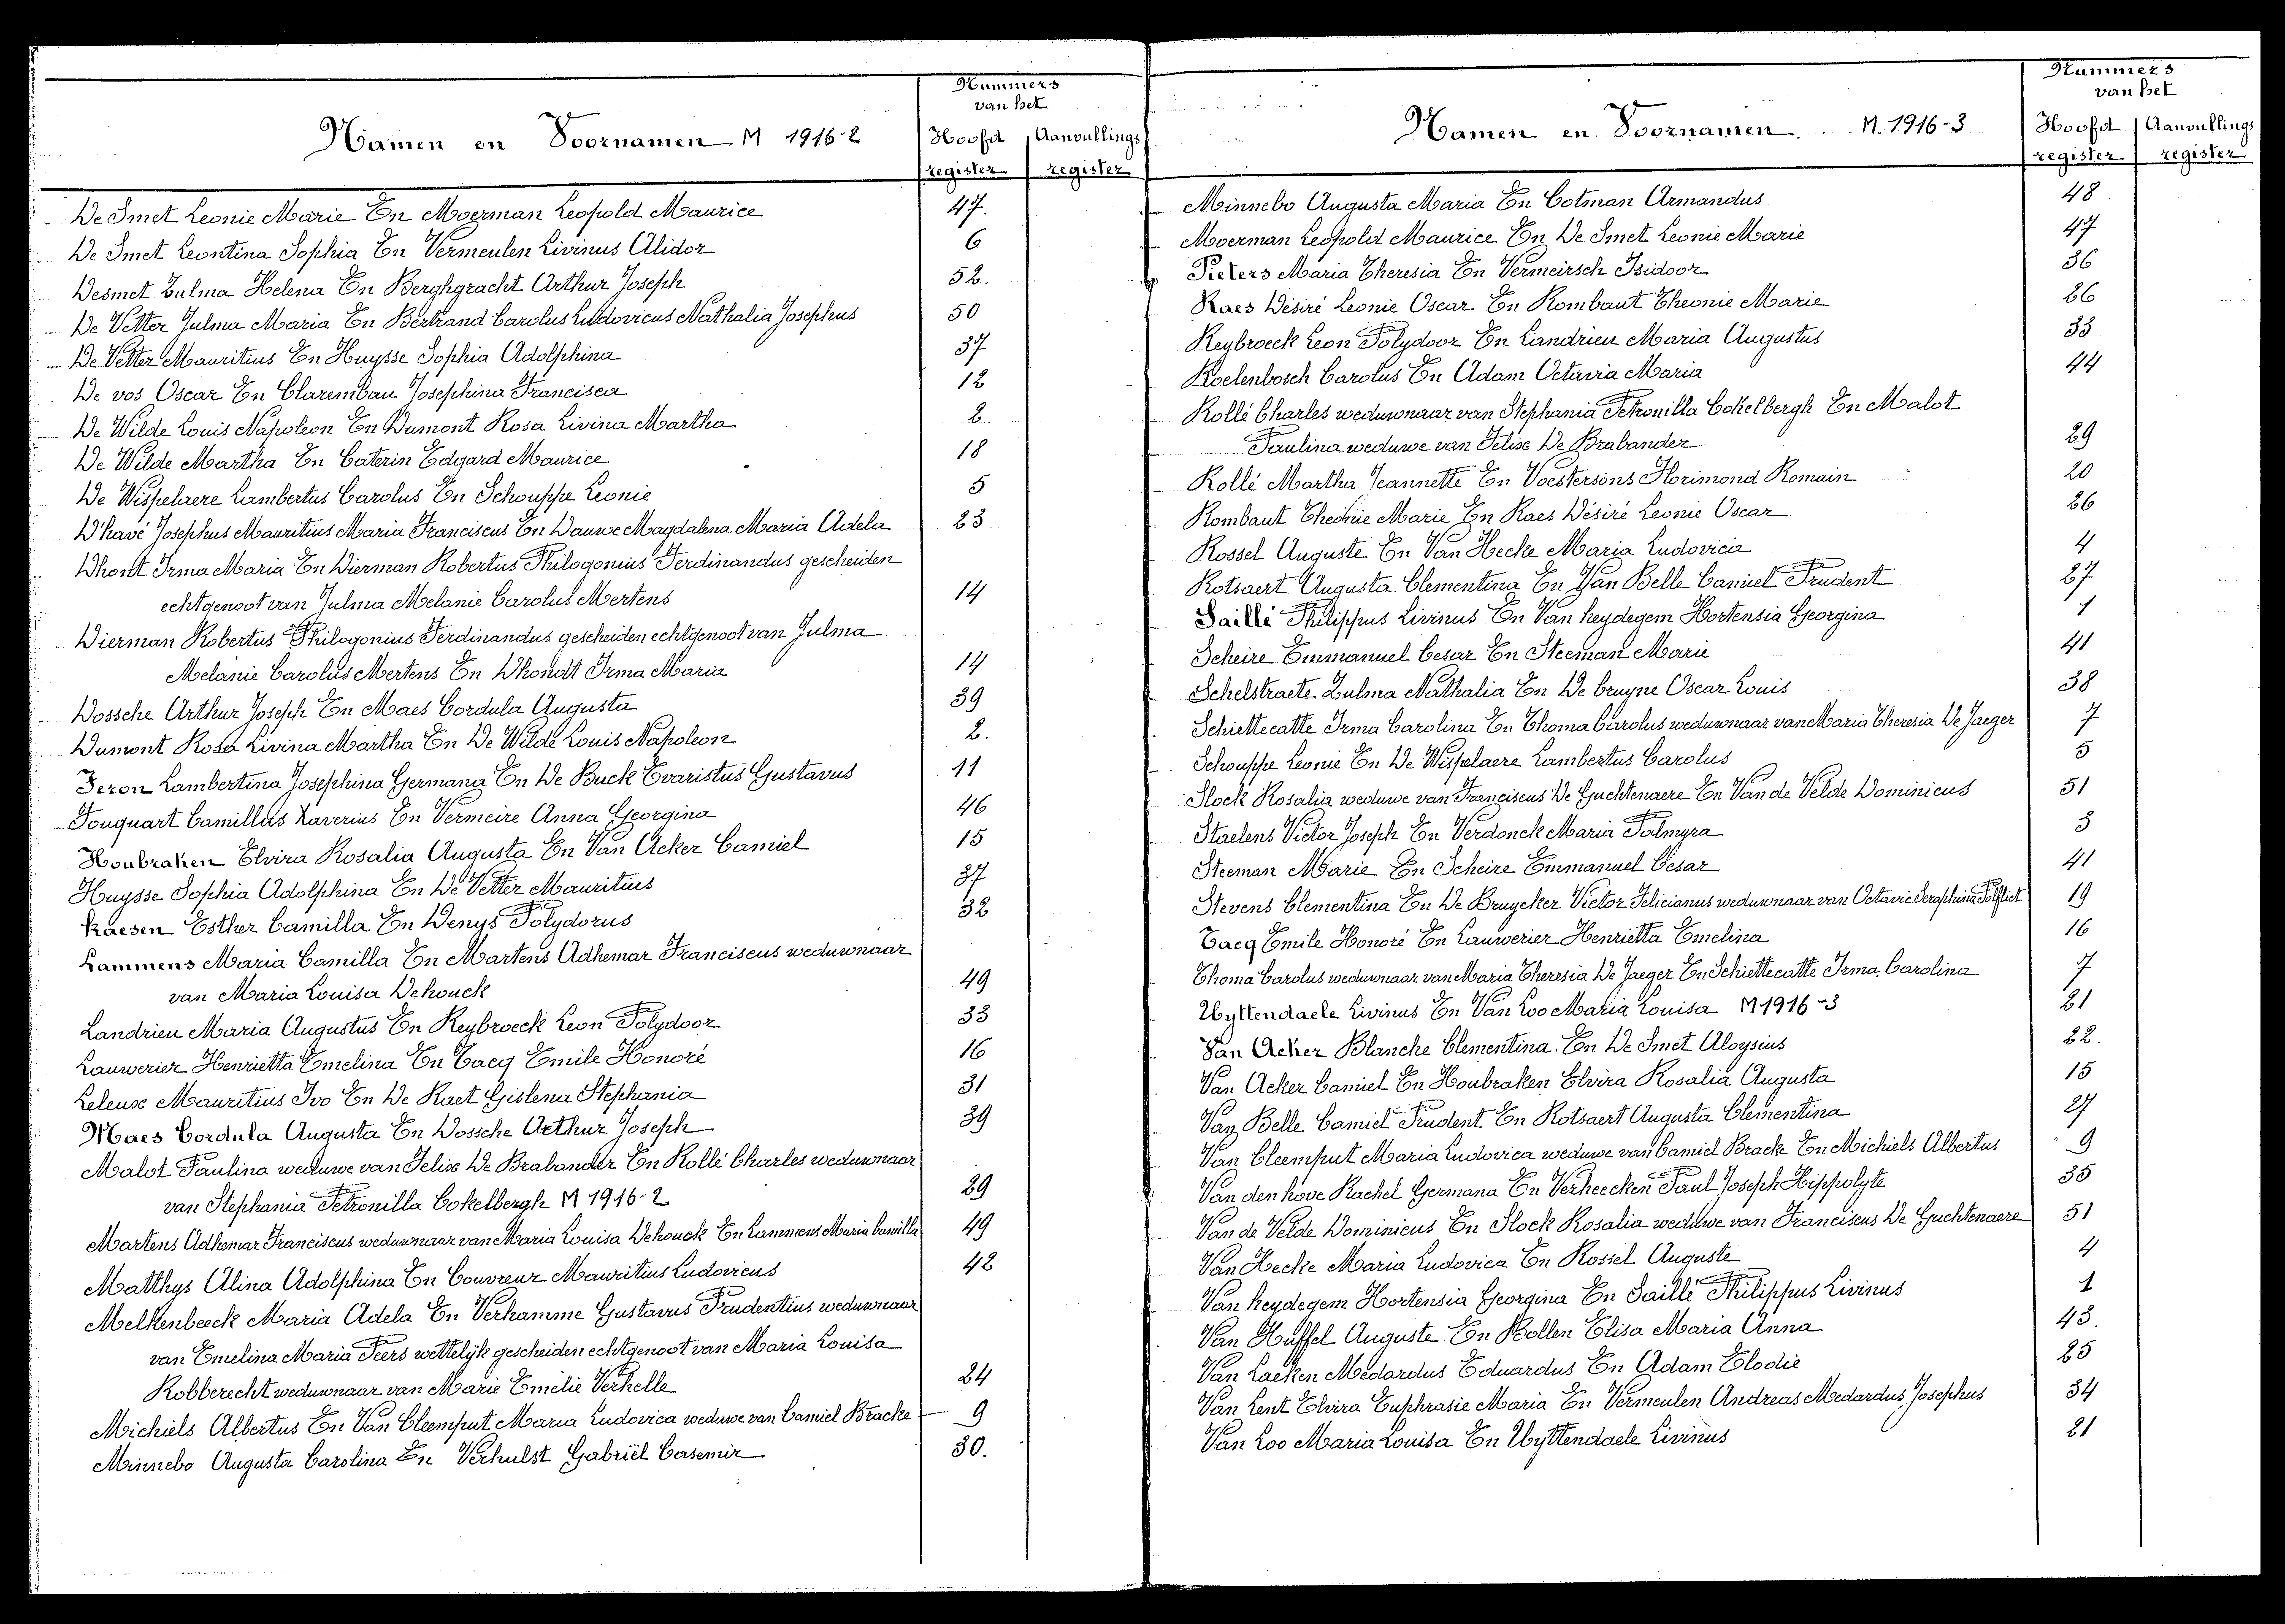 Nummers
van het
Namen en Voornamen M 1916-2
Hoofd Aanvullings
register register
De Smet Leonie Marie En Moerman Leopold Maurice 47.
De Smet Leontina Sophia En Vermeulen Livinus Alidor 6
Desmet Zulma Helena En Berghgracht Arthur Joseph 52.
De Vetter Julma Maria En Bertrand Carolus Ludovicus Nathalia Josephus 50
De Vetter Mauritius En Huysse Sophia Adolphina 37
De vos Oscar En Clarembau Josephina Francisca 12
De Wilde Louis Napoleon En Dumont Rosa Livina Martha 2
De Wilde Martha En Caterin Edgard Maurice 18
De Wispelaere Lambertus Carolus En Schouppe Leonie 5
D'havé Josephus Mauritius Maria Franciscus En Dauwe Magdalena Maria Adela 23
Dhont Irma Maria En Dierman Robertus Philogonius Ferdinandus gescheiden
echtgenoot van Julma Melanie Carolus Mertens 14
Dierman Robertus Philogonius Ferdinandus gescheiden echtgenoot van Julma
Melanie Carolus Mertens En Dhondt Irma Maria 14
Dossche Arthur Joseph En Maes Cordula Augusta 39
Dumont Rosa Livina Martha En De Wilde Louis Napoleon 2.
Feron Lambertina Josephina Germana En De Buck Evaristus Gustavus 11
Fouquart Camillus Xaverius En Vermeire Anna Georgina 46
Houbraken Elvira Rosalia Augusta En Van Acker Camiel 15
Huysse Sophia Adolphina En De Vetter Mauritius 37
Kaesen Esther Camilla En Denys Polydorus 32
Lammens Maria Camilla En Martens Adhemar Franciscus weduwnaar
van Maria Louisa Dehouck 49
Landrieu Maria Augustus En Reybroeck Leon Polydoor 33
Lauwerier Henrietta Emelina En Tacq Emile Honoré 16
Leleux Mauritius Ivo En De Raet Gislena Stephania 31
Maes Cordula Augusta En Dossche Arthur Joseph 39
Malot Paulina weduwe van Felix De Brabander En Rollé Charles weduwnaar
van Stephania Petronilla Cokelbergh M 1916-2 29
Martens Adhemar Franciscus weduwnaar van Maria Louisa Dehouck En Lammens Maria Camilla 49
Matthys Alina Adolphina En Couvreur Mauritius Ludovicus 42
Melkenbeeck Maria Adela En Verhamme Gustavus Prudentius weduwnaar
van Emelina Maria Peers wettelijk gescheiden echtgenoot van Maria Louisa
Robberecht weduwnaar van Marie Emelie Verhelle 24
Michiels Albertus En Van Cleemput Maria Ludovica weduwe van Camiel Bracke 9
Minnebo Augusta Carolina En Verhulst Gabriël Casemir 30.
Nummers
van het
Namen en Voornamen. M. 1916-3
Hoofd Aanvullings
register register
Minnebo Augusta Maria En Cotman Armandus 48
Moerman Leopold Maurice En De Smet Leonie Marie 47
Pieters Maria Theresia En Vermeirsch Isidoor 36
Raes Désiré Leonie Oscar En Rombaut Theonie Marie 26
Reybroeck Leon Polydoor En Landrieu Maria Augustus 33
Roelenbosch Carolus En Adam Octavia Maria 44
Rollé Charles weduwnaar van Stephania Petronilla Cokelbergh En Malot
Paulina weduwe van Felix De Brabander 29
Rollé Martha Jeannette En Voestersons Florimond Romain 20
Rombaut Theonie Marie En Raes Désiré Leonie Oscar 26
Rossel Auguste En Van Hecke Maria Ludovica 4
Rotsaert Augusta Clementina En Van Belle Camiel Prudent 27
Saillé Philippus Livinus En Van heydegem Hortensia Georgina 1
Scheire Emmanuel Cesar En Steeman Marie 41
Schelstraete Zulma Nathalia En De Cruyne Oscar Louis 38
Schiettecatte Irma Carolina En Thoma Carolus weduwnaar van Maria Theresia De Jaeger 7
Schouppe Leonie En De Wispelaere Lambertus Carolus 5
Slock Rosalia weduwe van Franciscus De Guchtenaere En Van de Velde Dominicus 51
Staelens Victor Joseph En Verdonck Maria Palmyra 3
Steeman Marie En Scheire Emmanuel Cesar 41
Stevens Clementina En De Bruycker Victor Felicianus weduwnaar van Octavie Seraphina Polfliet 19
Tacq Emile Honoré En Lauwerier Henrietta Emelina 16
Thoma Carolus weduwnaar van Maria Theresia De Jaeger En Schiettecatte Irma Carolina 7
Uyttendaele Livinus En Van Loo Maria Louisa M 1916-3 21
Van Acker Blanche Clementina En De Smet Aloysius 22.
Van Acker Camiel En Houbraken Elvira Rosalia Augusta 15
Van Belle Camiel Prudent En Rotsaert Augusta Clementina 27
Van Cleemput Maria Ludovica weduwe van Camiel Bracke En Michiels Albertus 9
Van den hove Rachel Germana En Verheecken Paul Joseph Hippolyte 35
Van de Velde Dominicus En Slock Rosalia weduwe van Franciscus De Guchtenaere 51
Van Hecke Maria Ludovica En Rossel Auguste 4
Van heydegem Hortensia Georgina En Saillé Philippus Livinus 1
Van Huffel Auguste En Bollen Elisa Maria Anna 43.
Van Laeken Medardus Eduardus En Adam Elodie 25
Van Lent Elvira Euphrasie Maria En Vermeulen Andreas Medardus Josephus 34
Van Loo Maria Louisa En Uyttendaele Livinus 21